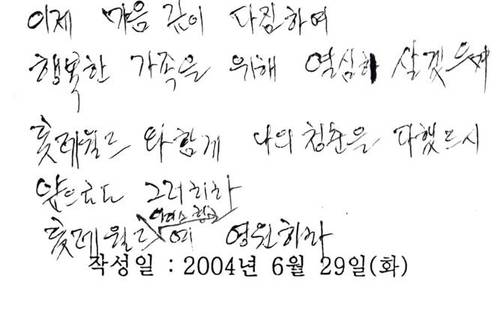 이제 마음 깊이 다짐하여
행복한 가족을 위해 열심히 살겠으며
홋데월드 와 함께 나의 청춘을 다했드시
앞으로도 그러리라
홋데월드여 영원하라
작성일 : 2004년 6월 29일(화)